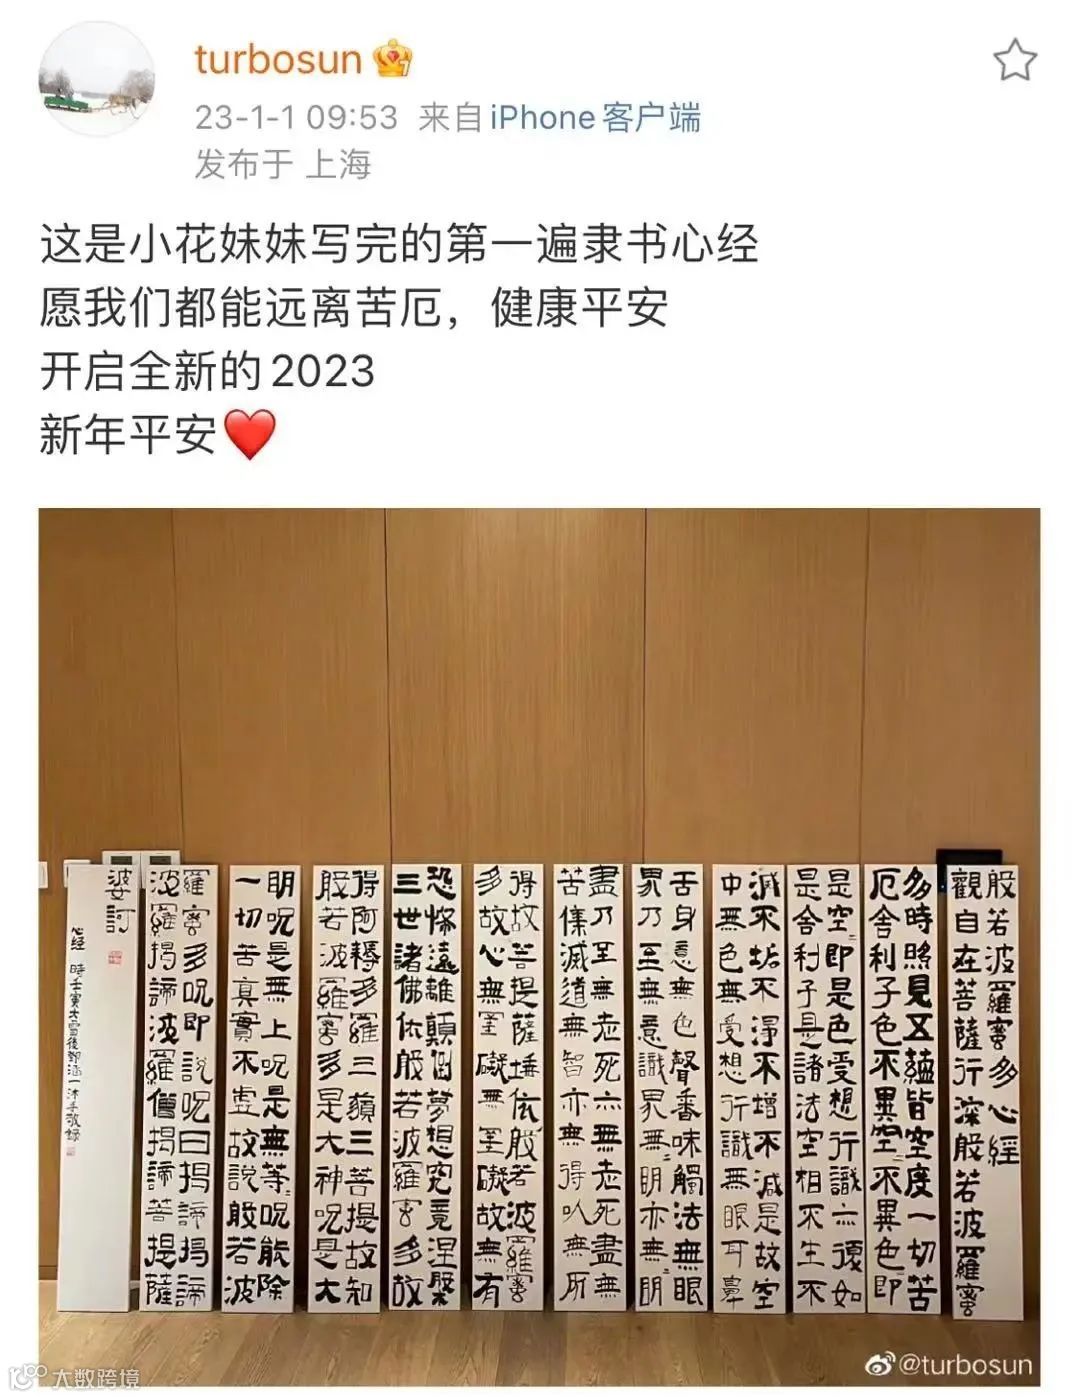 turbosun
23-1-1 09:53 来自 iPhone客户端
发布于 上海
这是小花妹妹写完的第一遍隶书心经
愿我们都能远离苦厄，健康平安
开启全新的2023
新年平安
般若波羅蜜多心經
觀自在菩薩行深般若波羅蜜
多時照見五蘊皆空度一切苦
厄舍利子色不異空二不異色即
是空二即是色受想行識亦復如
是舍利子是諸法空相不生不
滅不垢不淨不增不減是故空
中無色無受想行識無眼耳鼻
舌身意無色聲香味觸法無眼
界乃至無意識界無二明亦無二明
盡乃至無老死亦無老死盡無
苦集滅道無智亦無得以無所
得故菩提薩埵依般若波羅蜜
多故心無罣礙無罣礙故無有
恐怖遠離顛倒夢想究竟涅槃
三世諸佛依般若波羅蜜多故
得阿耨多羅三藐三菩提故知
般若波羅蜜多是大神呪是大
明呪是無上呪是無等二呪能除
一切苦真實不虛故說般若波
羅蜜多呪即說呪曰揭諦揭諦
波羅揭諦波羅僧揭諦菩提薩
婆訶
心经 時壬寅大雪後鄧涵一沐手敬錄
@turbosun
大数跨境